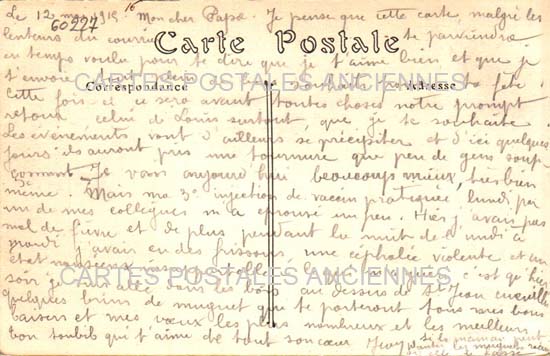 Le 12 mai 1915 16 Mon cher Papa. Je pense que cette carte, malgré les
60227
lenteurs du courrier te parviendra
Carte Postale
en temps voulu pour te dire que je t'aime bien et que je
t'envoie
Correspondance
Adresse
CARTES POSTALES ANCIENNES
Cette fois ce sera avant toutes choses notre prompt
retour celui de Louis surtout que je te souhaite
Les événements vont d'ailleurs se précipiter et d'ici quelques
jours ils auront pris une tournure que peu de gens soup
çonnent. Je vais aujourd'hui beaucoup mieux, très bien
même. Mais ma 3e injection de vaccin pratiquée lundi par
un de mes collègues m'a éprouvé un peu. Hier j'avais pas
mal de fièvre et de plus pendant la nuit de lundi à
mardi j'avais eu des frissons, une céphalée violente et un
état nauséeux c'est qu'hier
CARTES POSTALES ANCIENNES
soir je suis allé dans les bois au dessus de St Jean cueillir
quelques brins de muguet que te porteront tous mes bons
baisers et mes vœux les plus nombreux et les meilleurs
Ton toubib qui t'aime de tout son cœur
si la maman veut
planter les muguets